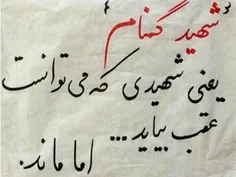 {شهید گمنام}
یعنی شهیدی که می توانست
عقب بیاید...
اما ماند.